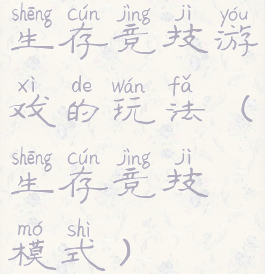 shēng cún jìng jì yóu
生存竞技游
xì de wán fǎ
戏的玩法（
shēng cún jìng jì
生存竞技
mó shì
模式）